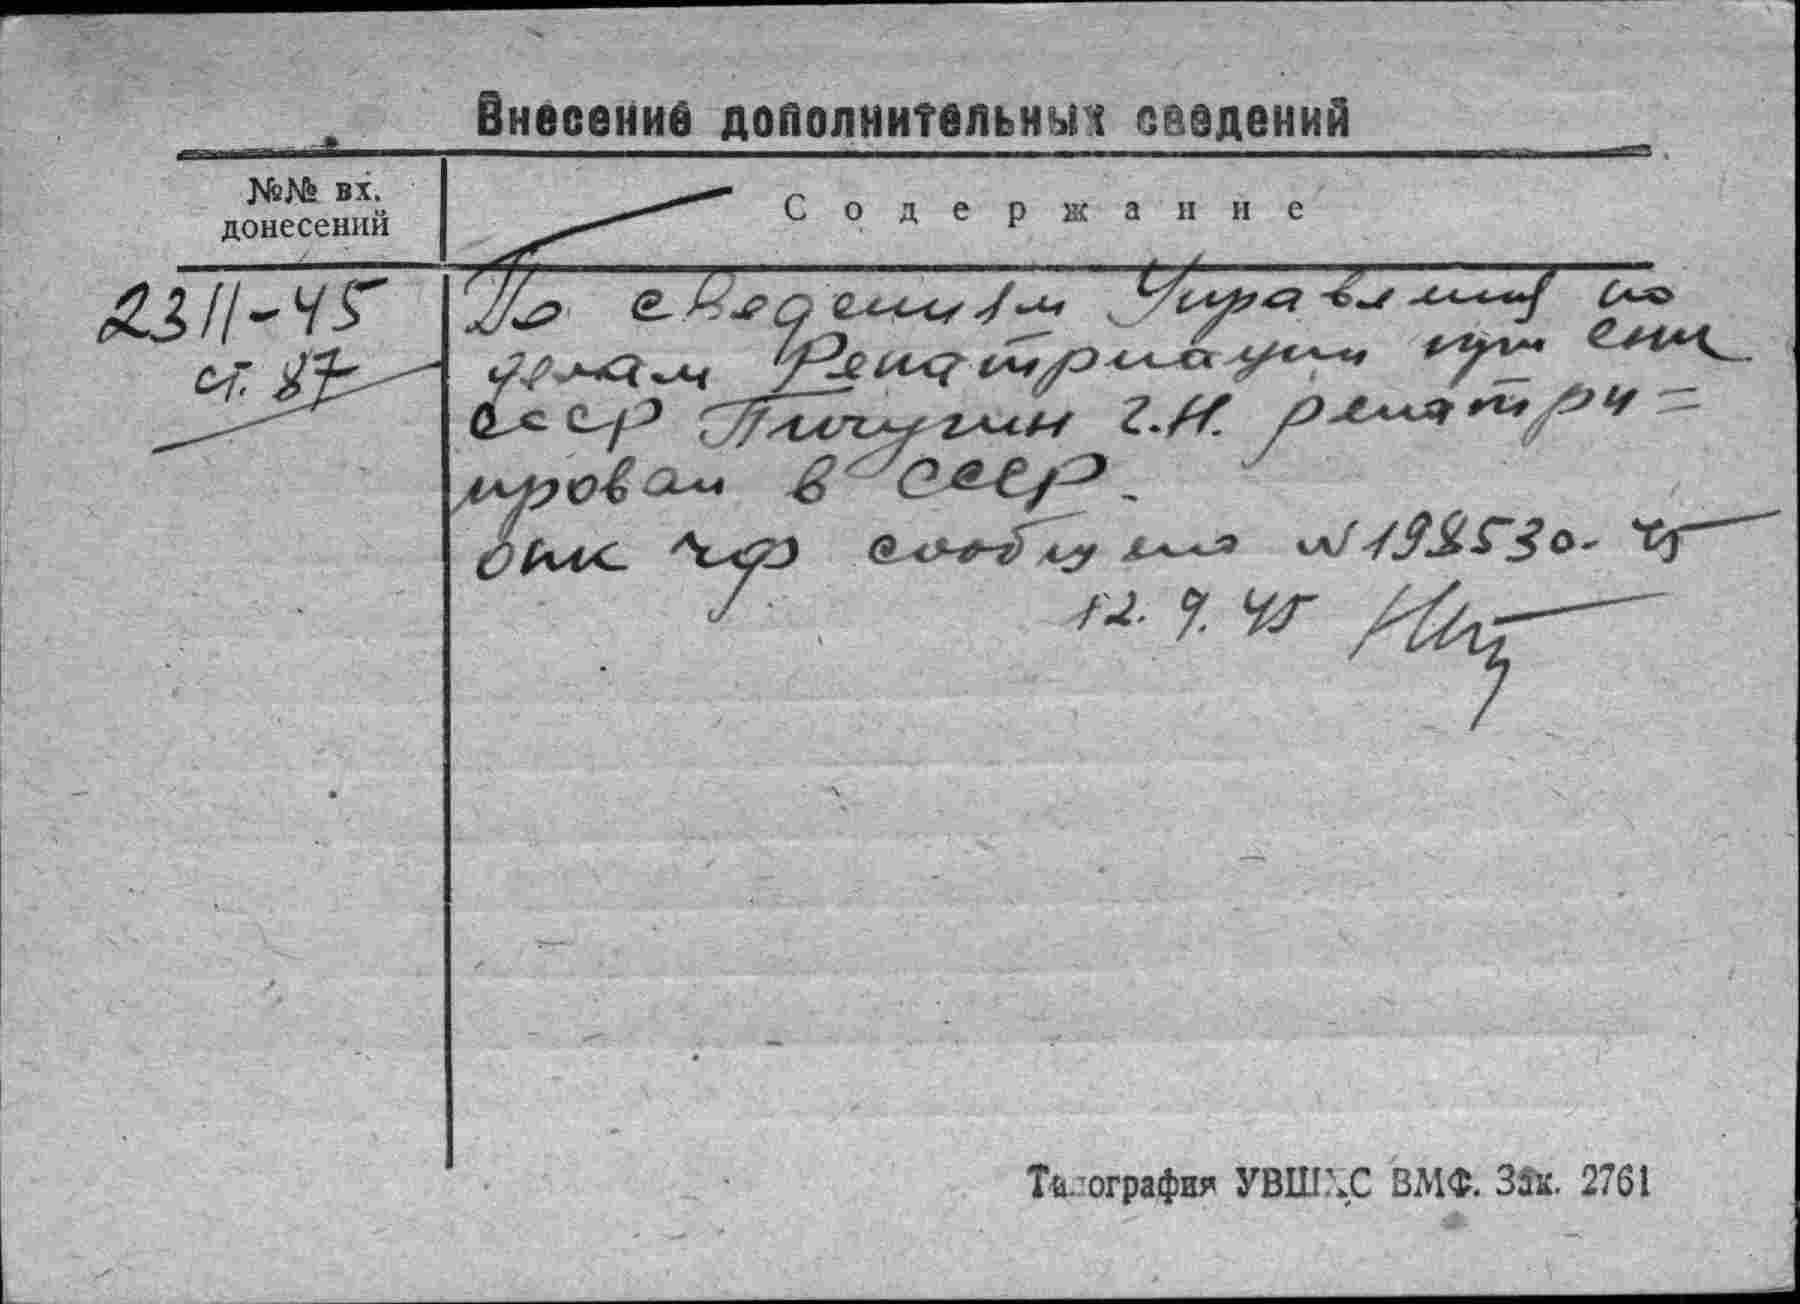 Внесение дополнительных сведений
№№ вх.
донесений
Содержание
2311-45
ст. 87
По сведениям Управления по
делам Репатриации при СНК
СССР Пичугин Г.Н. репатри=
ирован в СССР.
ОПК ЧФ сообщено N198530-45
12.9.45
Типография УВШХС ВМФ. Зак. 2761